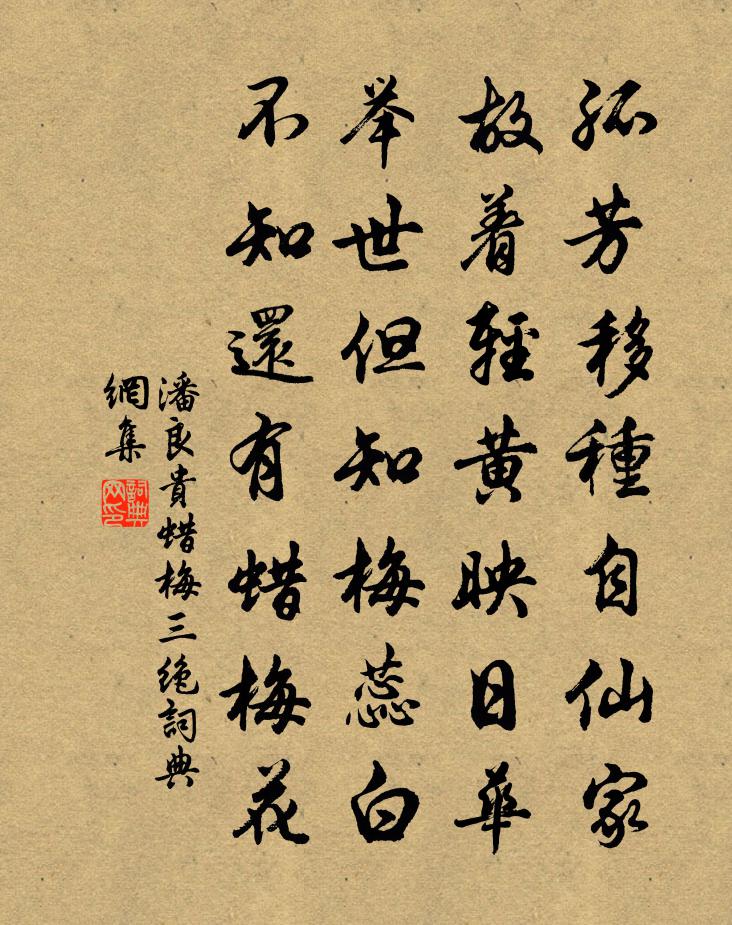 孤芳移種自仙家
故着輕黃映日華
举世但知梅蕊白
不知還有蜡梅花
潘良貴蜡梅三绝詞典
網集
詞典
网印